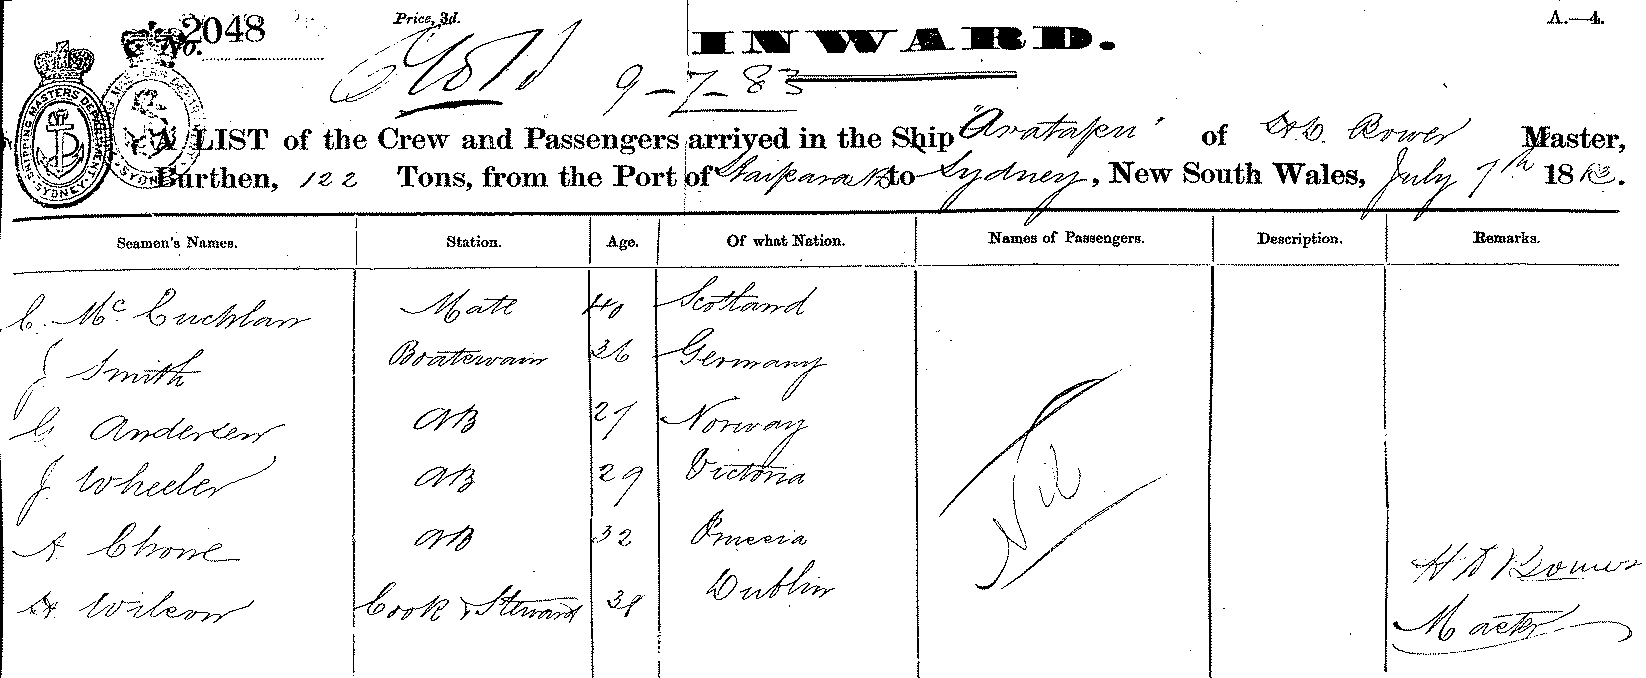 No. 2048
Price, 3d.
INWARD.
A.—4.
9-7-83
A LIST of the Crew and Passengers arrived in the Ship "Aratapu" of Master,
Burthen, 122 Tons, from the Port of to Sydney, New South Wales, July 7th 18
SHIPPING MASTERS DEPARTMENT. SYDNEY.
Seamen's Names. Station. Age. Of what Nation. Names of Passengers. Description. Remarks.
C. Mc Cuchlan Mate 40 Scotland
J Smith Boatswain 36 Germany
G. Andersen AB 27 Norway
J. Wheeler AB 29 Victoria
Nil
A. AB 32 Prussia
H Wilson Cook & Steward 38 Dublin
H D
Master